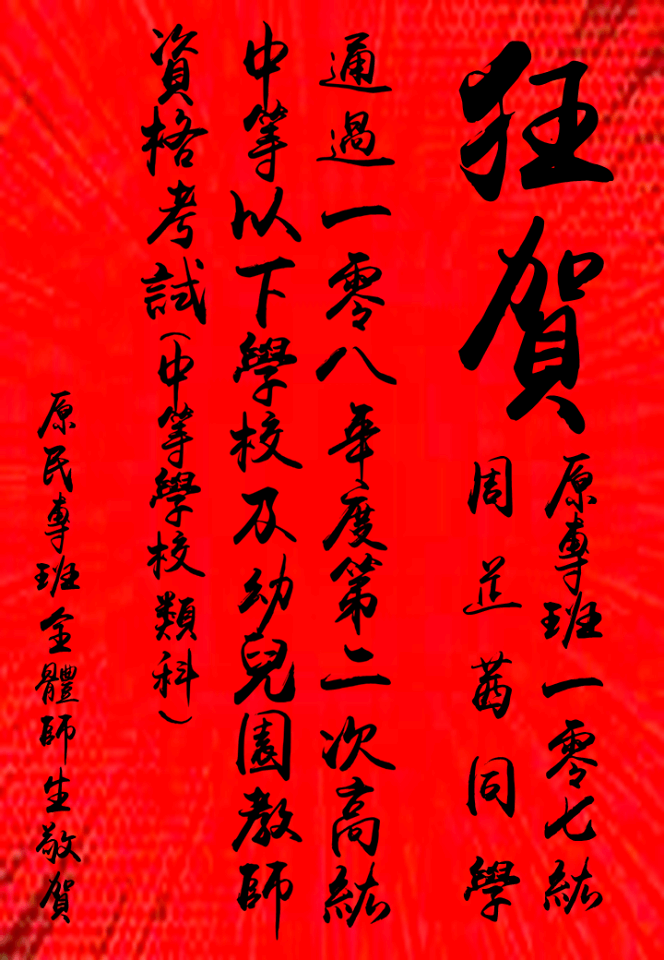 狂賀
原專班一零七級
周芷茜同學
通過一零八年度第二次高級
中等以下學校及幼兒園教師
資格考試(中等學校類科)
原民專班全體師生敬賀